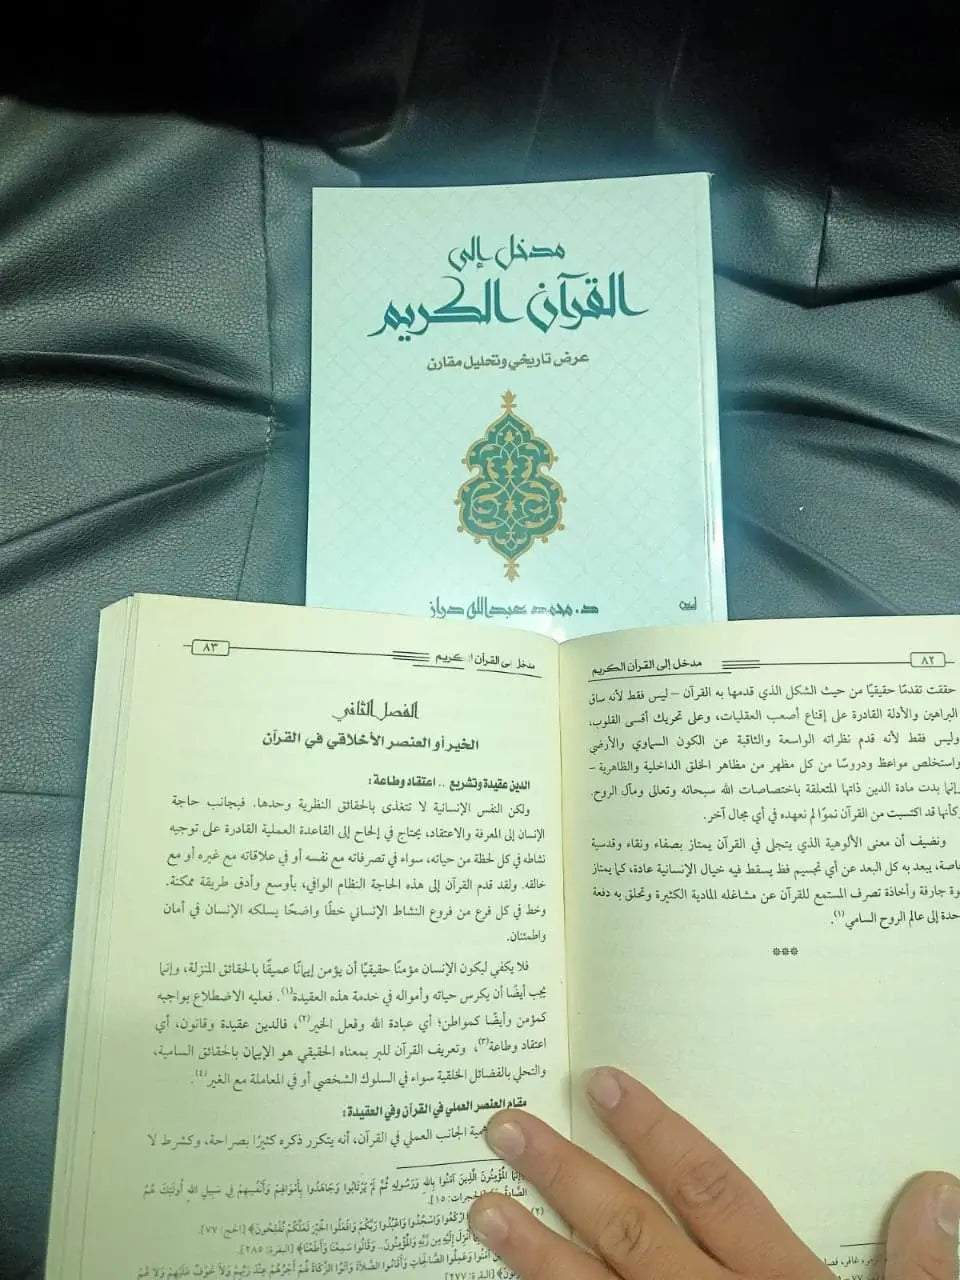 مدخل إلى
القرآن الكريم
عرض تاريخي وتحليل مقارن
د. محمد عبدالله دراز
٨٢
مدخل إلى القرآن الكريم
حققت تقدمًا حقيقيًا من حيث الشكل الذي قدمها به القرآن – ليس فقط لأنه ساق
البراهين والأدلة القادرة على إقناع أصعب العقليات، وعلى تحريك أقسى القلوب،
وليس فقط لأنه قدم نظراته الواسعة والثاقبة عن الكون السماوي والأرضي
واستخلص مواعظ ودروسًا من كل مظهر من مظاهر الخلق الداخلية والظاهرية –
وإنما بدت مادة الدين ذاتها المتعلقة باختصاصات الله سبحانه وتعالى ومآل الروح.
وكأنها قد اكتسبت من القرآن نموًا لم نعهده في أي مجال آخر.
ونضيف أن معنى الألوهية الذي يتجلى في القرآن يمتاز بصفاء ونقاء وقدسية
خاصة، يبعد به كل البعد عن أي تجسيم فظ يسقط فيه خيال الإنسانية عادة، كما يمتاز
جارفة وأخاذة تصرف المستمع للقرآن عن مشاغله المادية الكثيرة وتحلق به دفعة
حدة إلى عالم الروح السامي(١).
***
مدخل إلى القرآن الكريم
٨٣
الفصل الثاني
الخير أو العنصر الأخلاقي في القرآن
الدين عقيدة وتشريع .. اعتقاد وطاعة:
ولكن النفس الإنسانية لا تتغذى بالحقائق النظرية وحدها. فبجانب حاجة
الإنسان إلى المعرفة والاعتقاد، يحتاج في إلحاح إلى القاعدة العملية القادرة على توجيه
نشاطه في كل لحظة من حياته، سواء في تصرفاته مع نفسه أو في علاقاته مع غيره أو مع
خالقه. ولقد قدم القرآن إلى هذه الحاجة النظام الوافي، بأوسع وأدق طريقة ممكنة.
وخط في كل فرع من فروع النشاط الإنساني خطًا واضحًا يسلكه الإنسان في أمان
واطمئنان.
فلا يكفي ليكون الإنسان مؤمنًا حقيقيًا أن يؤمن إيمانًا عميقًا بالحقائق المنزلة، وإنما
يجب أيضًا أن يكرس حياته وأمواله في خدمة هذه العقيدة(١). فعليه الاضطلاع بواجبه
كمؤمن وأيضًا كمواطن؛ أي عبادة الله وفعل الخير(٢)، فالدين عقيدة وقانون، أي
اعتقاد وطاعة(٣)، وتعريف القرآن للبر بمعناه الحقيقي هو الإيمان بالحقائق السامية،
والتحلي بالفضائل الخلقية سواء في السلوك الشخصي أو في المعاملة مع الغير(٤).
مقام العنصر العملي في القرآن وفي العقيدة:
الجانب العملي في القرآن، أنه يتكرر ذكره كثيرًا بصراحة، وكشرط لا
الْمُؤْمِنُونَ الَّذِينَ آمَنُوا بِاللهِ وَرَسُولِهِ ثُمَّ لَمْ يَرْتَابُوا وَجَاهَدُوا بِأَمْوَالِهِمْ وَأَنْفُسِهِمْ فِي سَبِيلِ اللهِ أُولَئِكَ هُمُ
الحجرات: ١٥].
(٢) ارْكَعُوا وَاسْجُدُوا وَاعْبُدُوا رَبَّكُمْ وَافْعَلُوا الْخَيْرَ لَعَلَّكُمْ تُفْلِحُونَ﴾ [الحج: ٧٧].
أُنْزِلَ إِلَيْهِ مِنْ رَبِّهِ وَالْمُؤْمِنُونَ.. وَقَالُوا سَمِعْنَا وَأَطَعْنَا﴾ [البقرة: ٢٨٥].
وَعَمِلُوا الصَّالِحَاتِ وَأَقَامُوا الصَّلَاةَ وَآتَوُا الزَّكَاةَ لَهُمْ أَجْرُهُمْ عِنْدَ رَبِّهِمْ وَلَا خَوْفٌ عَلَيْهِمْ وَلَا هُمْ
[البقرة: ٢٧٧]